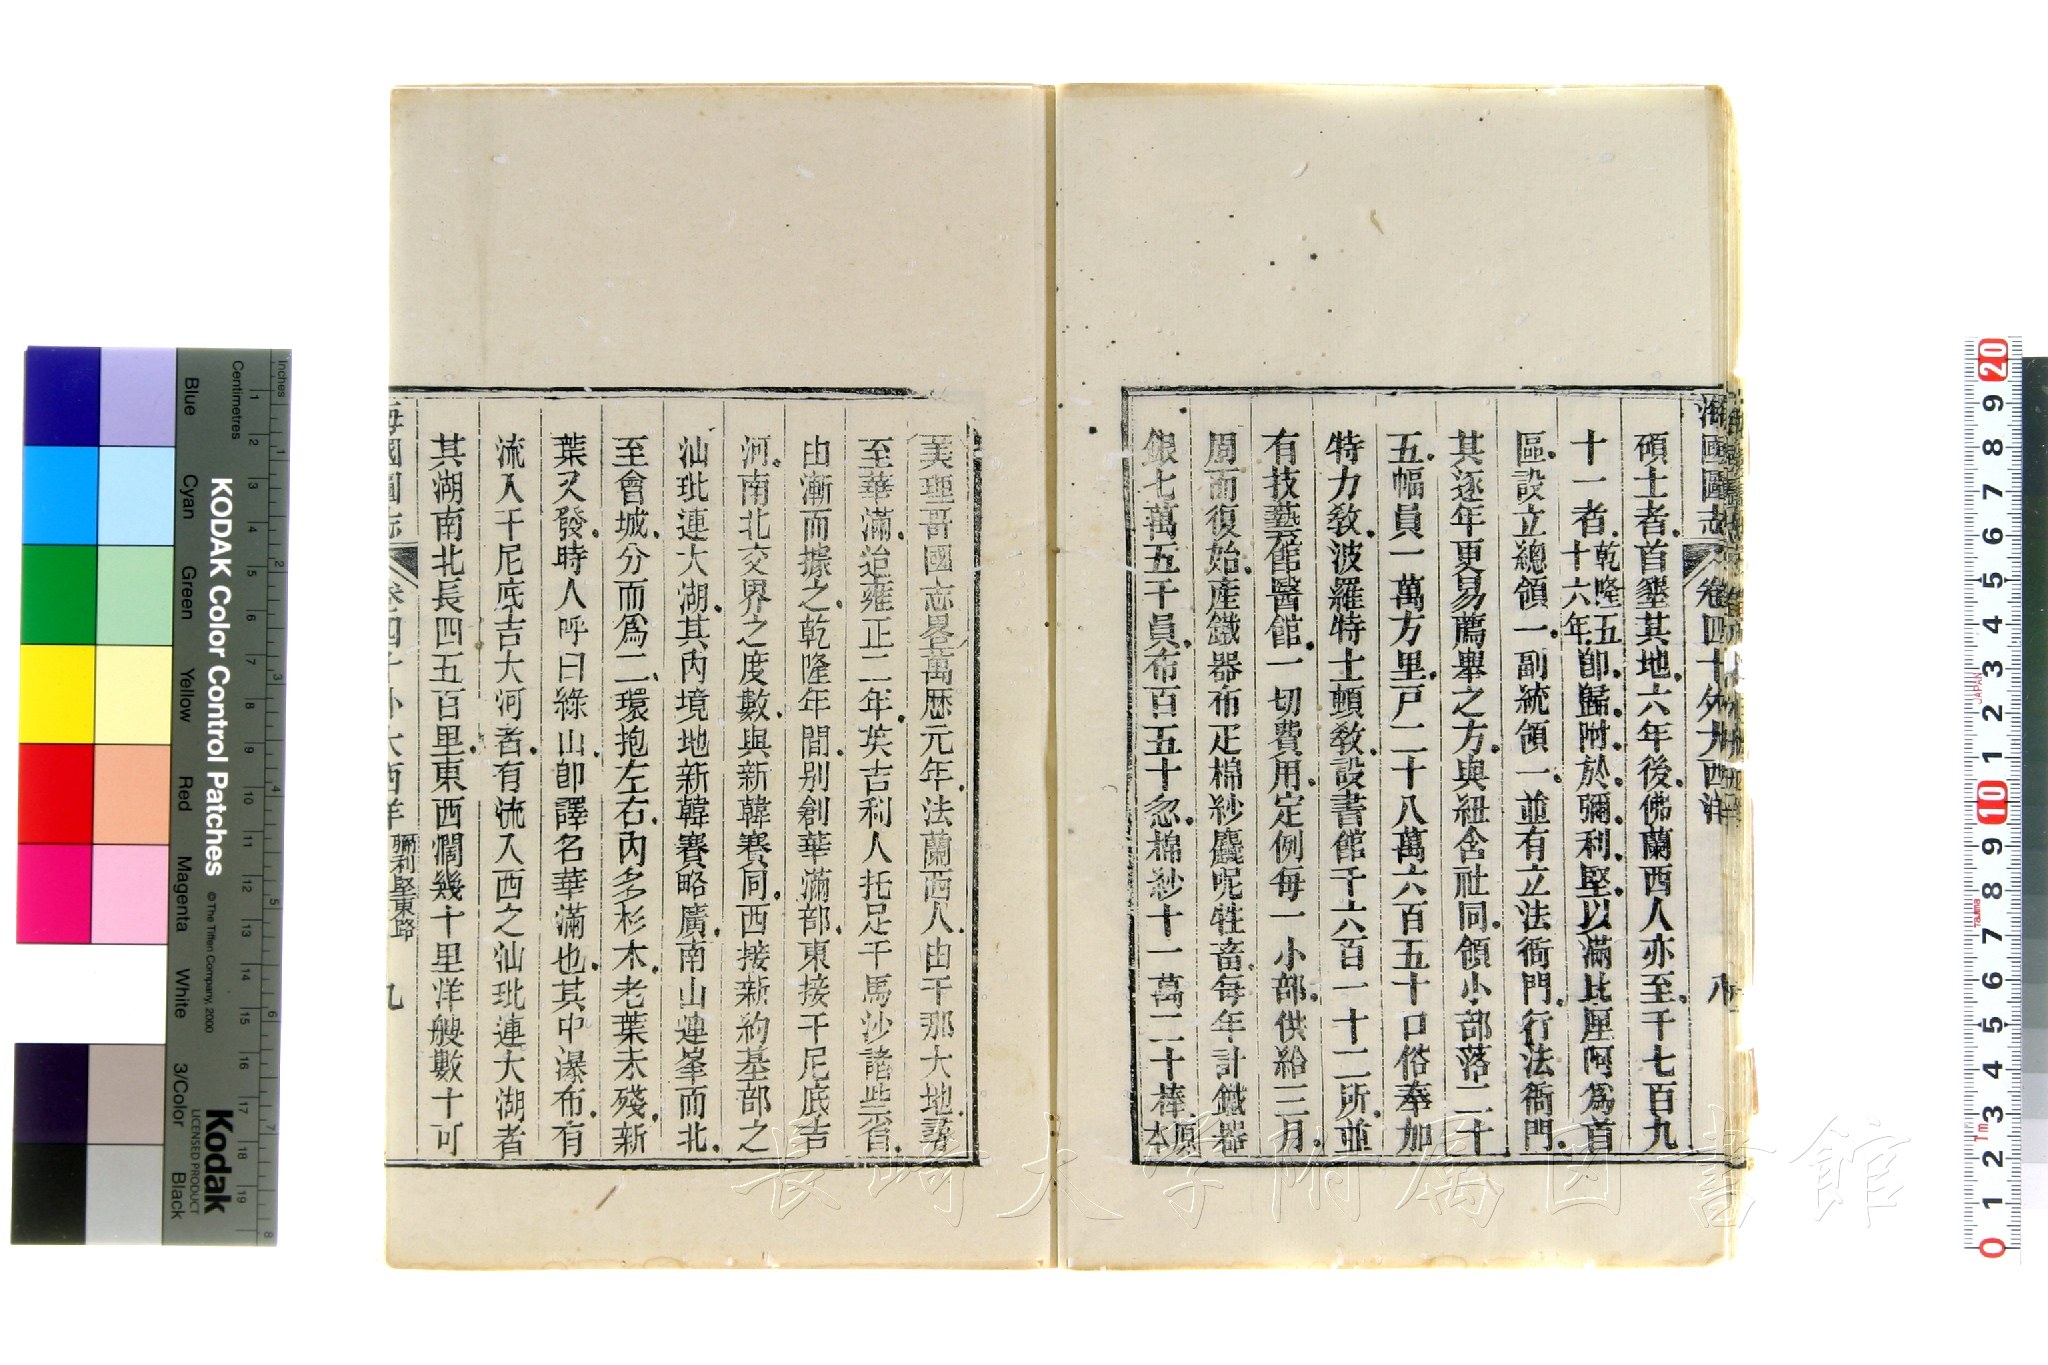 海國圖志 卷四十 外大西洋 八
碩士者首墾其地六年後佛蘭西人亦至千七百九
十一者乾隆五十六年卽歸附於彌利堅以滿比厘阿爲首
區設立總領一副統領一並有立法衙門行法衙門
其逐年更易薦舉之方與紐含社同領小部落二十
五幅員一萬方里戸二十八萬六百五十口俗奉加
特力敎波羅特士頓敎設書館千六百一十二所並
有技藝館醫館一切費用定例每一小部供給三月
周而復始產鐵器布疋棉紗麤呢牲畜每年計鐵器
銀七萬五千員布百五十忽棉紗十一萬二十棒原本
美理哥國志畧萬歴元年法蘭西人由干那大地尋
至華滿迨雍正二年英吉利人托足于馬沙諸些省
由漸而據之乾隆年間别創華滿部東接干尼底吉
河南北交界之度數與新韓賽同西接新約基部之
汕玼連大湖其內境地新韓賽略廣南山連峯而北
至會城分而爲二環抱左右內多杉木老葉未殘新
葉又發時人呼曰綠山卽譯名華滿也其中瀑布有
流入干尼底吉大河者有流入西之汕玼連大湖者
其湖南北長四五百里東西濶幾十里洋艘數十可
海國圖志 卷四十 外大西洋 彌利堅東路 九
KODAK Color Control Patches
© The Tiffen Company, 2000
Kodak
LICENSED PRODUCT
Inches
Centimetres
Blue
Cyan
Green
Yellow
Red
Magenta
White
3/Color
Black
長崎大学附属図書館